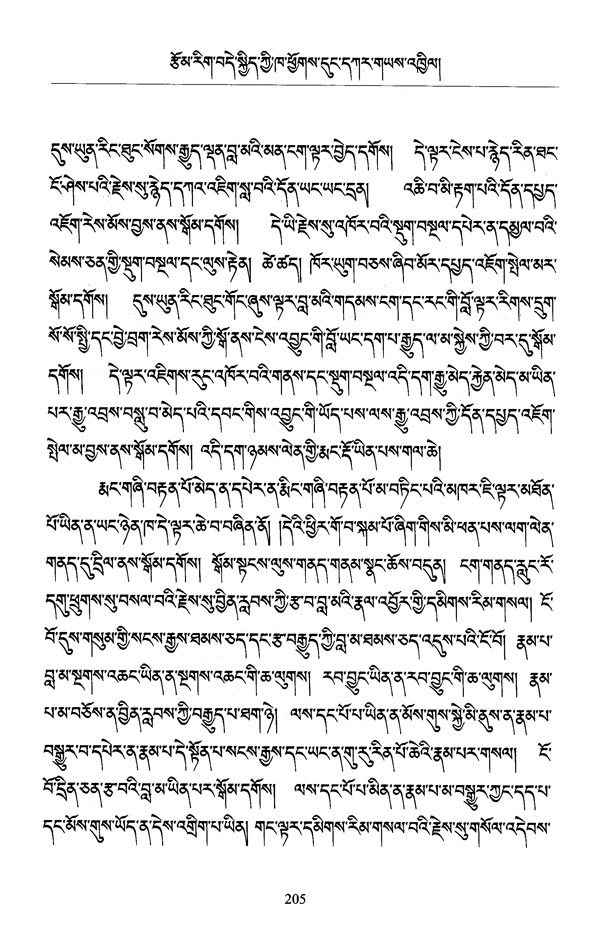 རྩོམ་རིག་བདེ་སྐྱིད་ཀྱི་ཁ་ཕྱོགས་དུང་དཀར་གཡས་འཁྱིལ།
དུས་ཡུན་རིང་ཐུང་སོགས་རྒྱུད་ལྡན་བླ་མའི་མན་ངག་ལྟར་བྱེད་དགོས། དེ་ལྟར་ངེས་པ་རྙེད་རིན་ཐང་
ངོ་ཤེས་པའི་རྗེས་སུ་རྙེད་དཀའ་འཇིག་སླ་བའི་དོན་ཡང་ཡང་དྲན། འཆི་བ་མི་རྟག་པའི་དོན་དཔྱད་
འཇོག་རེས་མོས་བྱས་ནས་སྒོམ་དགོས། དེ་ཡི་རྗེས་སུ་འཁོར་བའི་སྡུག་བསྔལ་དཔེར་ན་དམྱལ་བའི་
སེམས་ཅན་གྱི་སྡུག་བསྔལ་དང་ལུས་རྟེན། ཚེ་ཚད། ཁོར་ཡུག་བཅས་ཞིབ་མོར་དཔྱད་འཇོག་སྤེལ་མར་
སྒོམ་དགོས། དུས་ཡུན་རིང་ཐུང་གོང་ཞུས་ལྟར་བླ་མའི་གདམས་ངག་དང་རང་གི་བློ་ལྟར་རིགས་དྲུག་
སོ་སོ་སྤྱི་དང་བྱེ་བྲག་རེས་མོས་ཀྱི་སྒོ་ནས་ངེས་འབྱུང་གི་བློ་ཡང་དག་པ་རྒྱུད་ལ་མ་སྐྱེས་ཀྱི་བར་དུ་སྒོམ་
དགོས། དེ་ལྟར་འཇིགས་རུང་འཁོར་བའི་གནས་དང་སྡུག་བསྔལ་འདི་དག་རྒྱུ་མེད་རྐྱེན་མེད་མ་ཡིན་
པར་རྒྱུ་འབྲས་བསླུ་བ་མེད་པའི་དབང་གིས་འབྱུང་གི་ཡོད་པས་ལས་རྒྱུ་འབྲས་ཀྱི་དོན་དཔྱད་འཇོག་
སྤེལ་མ་བྱས་ནས་སྒོམ་དགོས། འདི་དག་ཉམས་ལེན་གྱི་རྨང་རྡོ་ཡིན་པས་གལ་ཆེ།
རྨང་གཞི་བརྟན་པོ་མེད་ན་དཔེར་ན་རྨིང་གཞི་བརྟན་པོ་མ་བཏིང་པའི་མཁར་ཇི་ལྟར་མཐོན་
པོ་ཡིན་ན་ཡང་ཉེན་ཁ་དེ་ལྟར་ཆེ་བ་བཞིན་ནོ། །དེའི་ཕྱིར་གོ་བ་སྐམ་པོ་ཞིག་གིས་མི་ཕན་པས་ལག་ལེན་
གནད་དུ་དྲིལ་ནས་སྒོམ་དགོས། སྒོམ་སྟངས་ལུས་གནད་གནམ་སྣང་ཆོས་བདུན། ངག་གནད་རླུང་རོ་
དགུ་ཕྲུགས་སུ་བསལ་བའི་རྗེས་སུ་བྱིན་རླབས་ཀྱི་རྩ་བ་བླ་མའི་རྣལ་འབྱོར་གྱི་དམིགས་རིམ་གསལ། ངོ་
བོ་དུས་གསུམ་གྱི་སངས་རྒྱས་ཐམས་ཅད་དང་རྩ་བརྒྱུད་ཀྱི་བླ་མ་ཐམས་ཅད་འདུས་པའི་ངོ་བོ། རྣམ་པ་
བླ་མ་སྔགས་འཆང་ཡིན་ན་སྔགས་འཆང་གི་ཆ་ལུགས། རབ་བྱུང་ཡིན་ན་རབ་བྱུང་གི་ཆ་ལུགས། རྣམ་
པ་མ་བཅོས་ན་བྱིན་རླབས་ཀྱི་བརྒྱུད་པ་ཐག་ཉེ། ལས་དང་པོ་པ་ཡིན་ན་མོས་གུས་སྐྱེ་མི་ནུས་ན་རྣམ་པ་
བསྒྱུར་བ་དཔེར་ན་རྣམ་པ་དེ་སྟོན་པ་སངས་རྒྱས་དང་ཡང་ན་གུ་རུ་རིན་པོ་ཆེའི་རྣམ་པར་གསལ། ངོ་
བོ་དྲིན་ཅན་རྩ་བའི་བླ་མ་ཡིན་པར་སྒོམ་དགོས། ལས་དང་པོ་པ་མིན་ན་རྣམ་པ་མ་བསྒྱུར་ཀྱང་དད་པ་
དང་མོས་གུས་ཡོད་ན་དེས་འགྲིག་པ་ཡིན། གང་ལྟར་དམིགས་རིམ་གསལ་བའི་རྗེས་སུ་གསོལ་འདེབས་
205